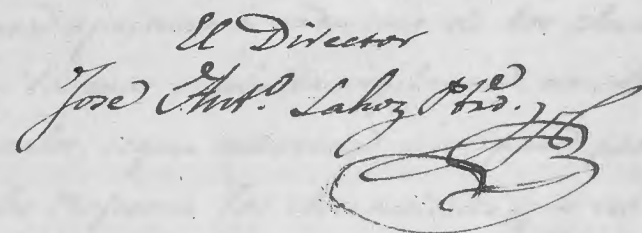 El Director
Jose Ant.º Lahoz Pbro.